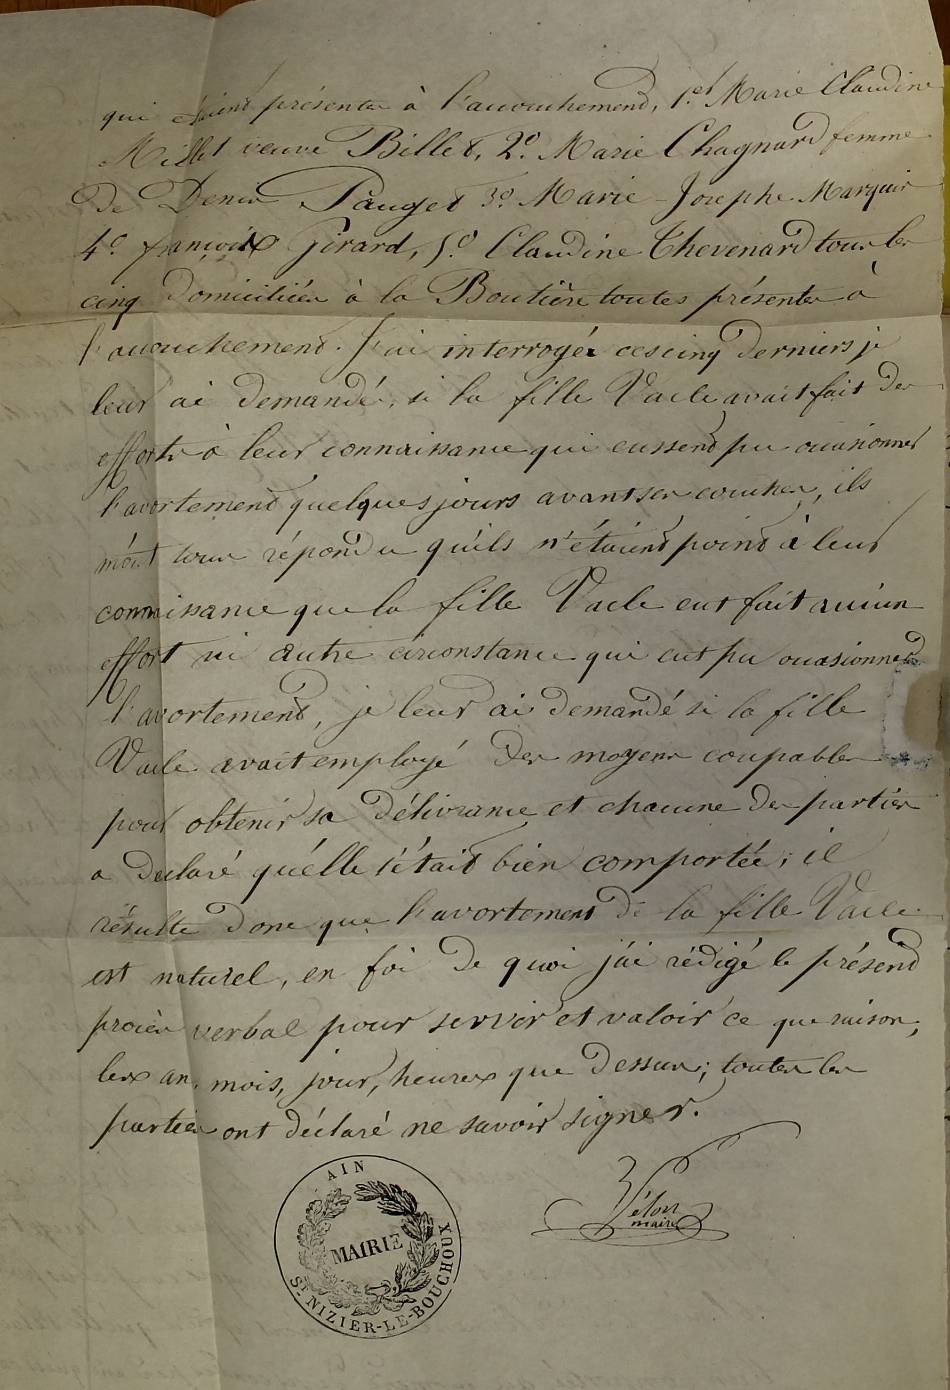 qui étaient présentes à l'accouchement, 1.et Marie Claudine
Millet veuve Billet, 2.o Marie Chagnard femme
de Denis Pauget 3.o Marie-Josephe Marquis
4.o françoise Girard, 5.o Claudine Thevenard tous les
cinq domiciliées à la Boutière toutes présentes à
l'accouchement. J'ai interrogés ces cinq derniers je
leur ai demandé, si la fille Vacle avait fait des
efforts à leur connaissance qui eussent pu occasionner
l'avortement quelques jours avant ses couches, ils
m'ont tous répondu qu'ils n'étaient point à leur
connaissance que la fille Vacle eut fait aucun
effort ni autre circonstance qui eut pu occasionner
l'avortement, je leur ai demandé si la fille
Vacle avait employé des moyens coupables
pour obtenir sa délivrance et chacune des parties
a déclaré qu'elle s'était bien comportée; il
résulte donc que l'avortement de la fille Vacle
est naturel, en foi de quoi j'ai rédigé le présent
procès verbal pour servir et valoir ce que raison,
les an, mois, jour, heures que dessus; toutes les
parties ont déclaré ne savoir signer.
maire
AIN
MAIRIE
ST. NIZIER-LE-BOUCHOUX